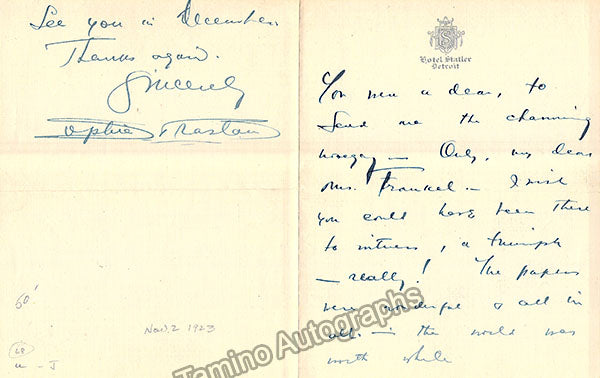 Hotel Statler
Detroit
You were a dear, to
send me the charming
nosegay — Only, my dear
Mrs. Frankel — I wish
you could have been there
to witness, a triumph
— really! The papers
were wonderful & all in
all — the world was
worth while
See you in December.
Thanks again.
Sincerely
Sophie Braslau
50'
Nov. 2 1923
Tamino Autographs